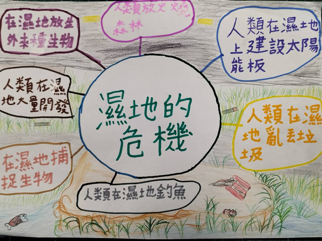 在濕地放生
外來種生物
人類放火燒
森林
人類在濕地
上建設太陽
能板
人類在濕
地大量開發
濕地的
危機
人類在濕
地亂丟垃
圾
在濕地捕
捉生物
人類在濕地釣魚